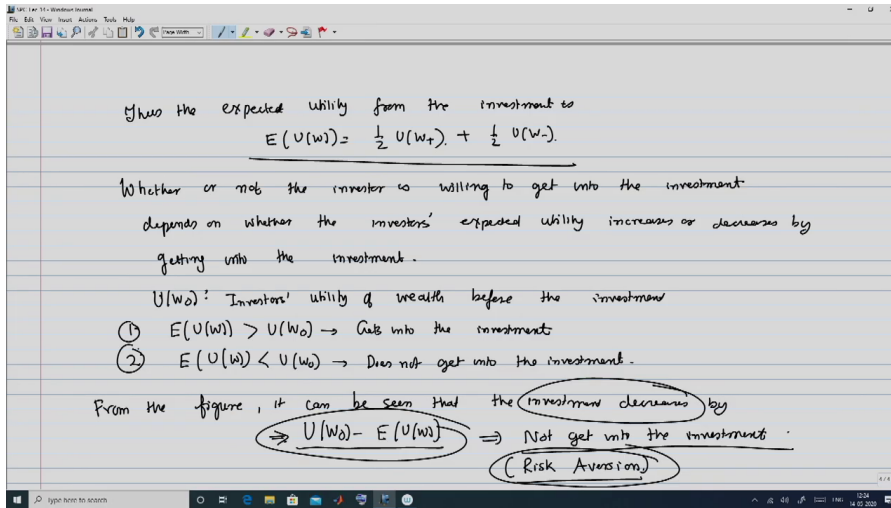 SPC Lec 11 - Windows Journal
File Edit View Insert Actions Tools Help
Page Width
Thus the expected utility from the investment is
E(U(W)) = 1/2 U(W+). + 1/2 U(W-).
Whether or not the investor is willing to get into the investment
depends on whether the investors' expected utility increases or decreases by
getting into the investment.
U(W0): Investors' utility of wealth before the investment
① E(U(W)) > U(W0) → Gets into the investment
② E(U(W)) < U(W0) → Does not get into the investment.
From the figure, it can be seen that the investment decreases by
⇒ U(W0) - E(U(W)) ⇒ Not get into the investment.
(Risk Aversion)
4/4
Type here to search
ENG
12:24
14-05-2020